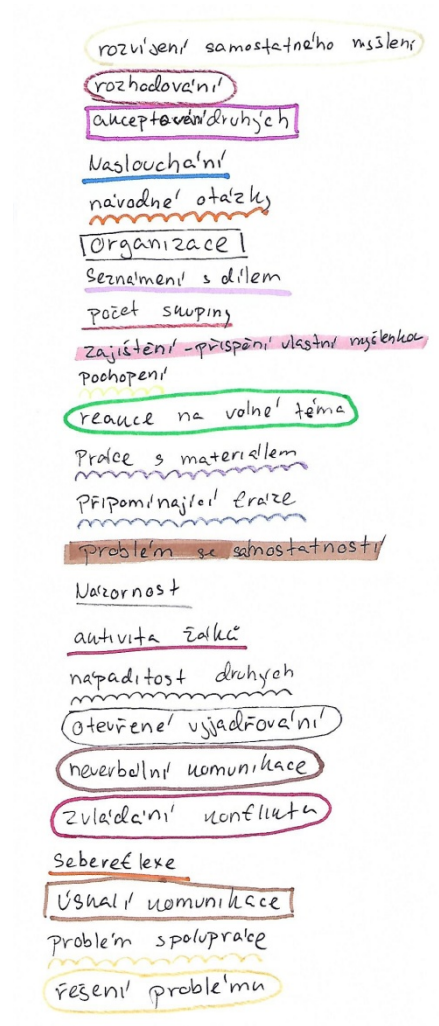 rozvíjení samostatného myšlení
rozhodování
akceptování druhých
Naslouchání
návodné otázky
organizace
Seznámení s dílem
počet skupiny
zajištění - přispění vlastní myšlenkou
pochopení
reakce na volné téma
Práce s materiálem
Připomínající fráze
problém se samostatností
Názornost
aktivita žáků
nápaditost druhých
otevřené vyjadřování
neverbální komunikace
zvládání konfliktu
Sebereflexe
Úskalí komunikace
problém spolupráce
řešení problému